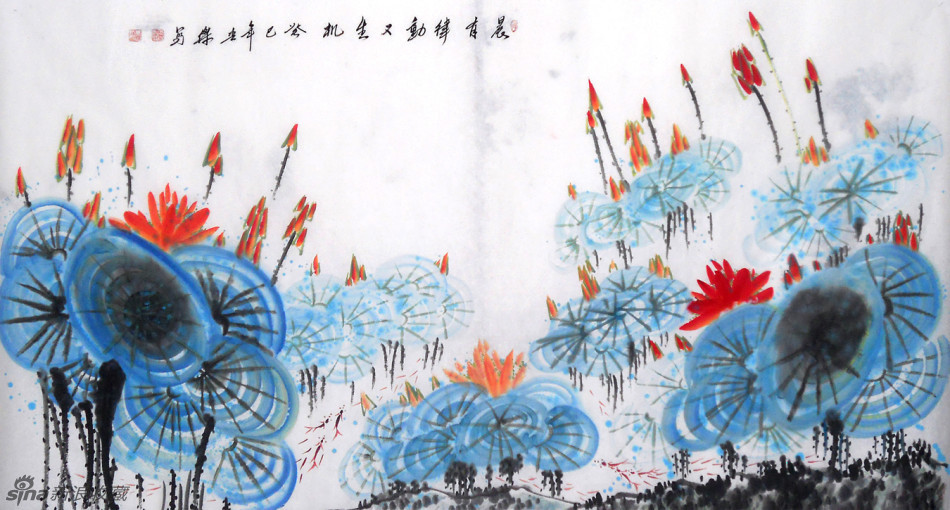 晨有律動又生机 癸巳年圭傑写
sina 新浪收藏